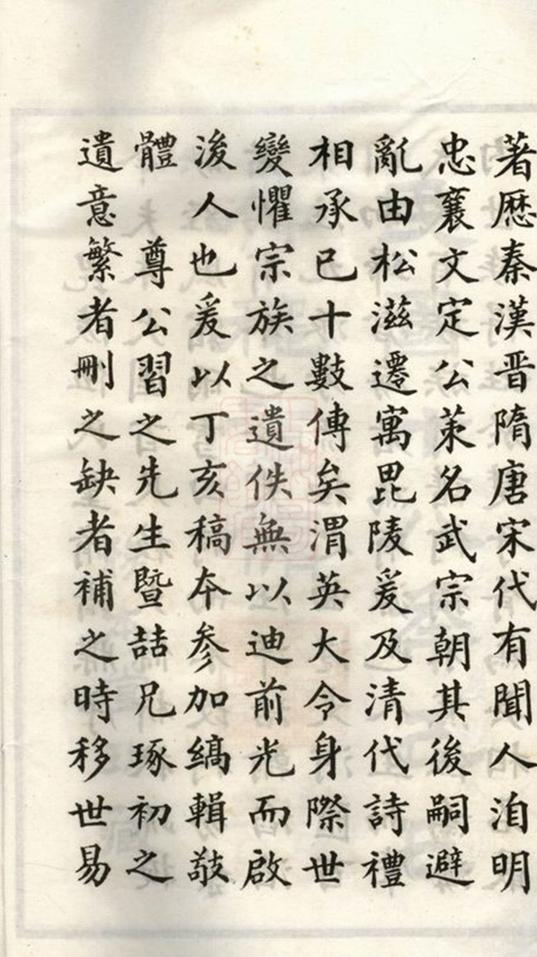 著歷秦漢晉隋唐宋代有聞人洎明
忠襄文定公䇿名武宗朝其後嗣避
亂由松滋遷寓毘陵爰及清代詩禮
相承已十數傳矣渭英大令身際世
變懼宗族之遺佚無以迪前光而啟
後人也爰以丁亥稿本參加編輯敬
體　尊公習之先生暨喆兄琢初之
遺意繁者刪之缺者補之時移世易